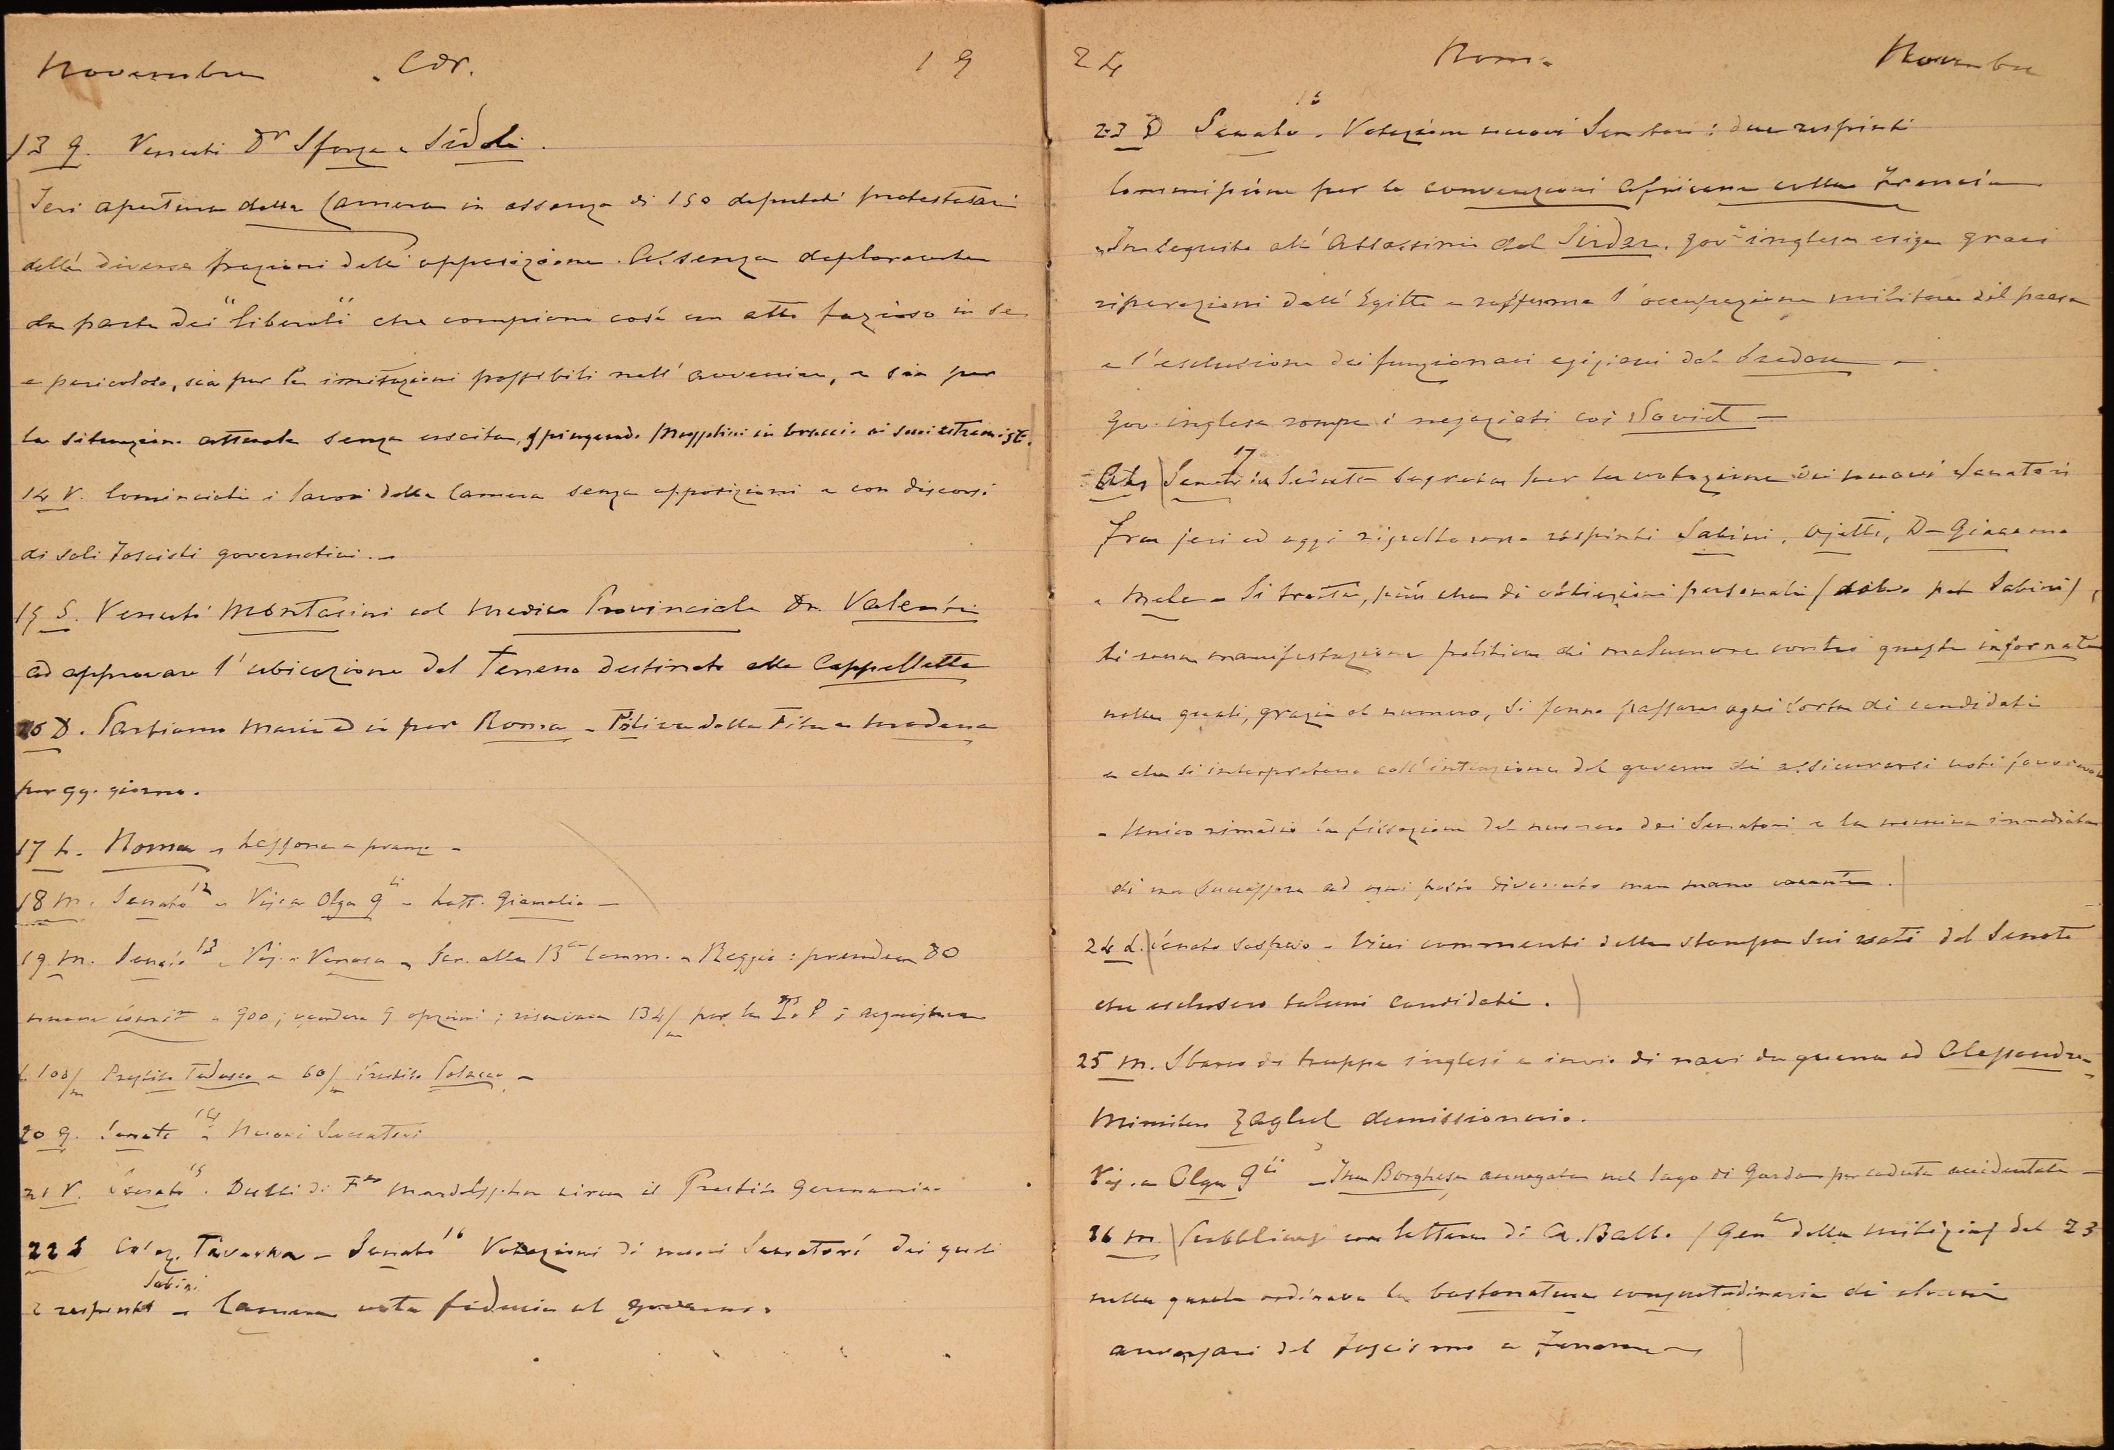 Novembre Cdr. 19
13 G. Venuti Dr Sforza e Sidoli.
Ieri apertura della Camera in assenza di 150 deputati protestatari
delle diverse frazioni dell'opposizione. Assenza deplorevole
da parte dei "liberali" che compiono così un atto fazioso in se
e pericoloso, sia per le imitazioni possibili nell'avvenire, e sia per
la situazione attuale senza uscita, spingendo Mussolini in braccio ai suoi estremisti.
14 V. Cominciati i lavori della Camera senza opposizioni e con discorsi
di soli Fascisti governativi. -
15 S. Venuti Montasini col medico Provinciale Dr. Valentini
ad approvare l'ubicazione del Terreno destinato alla Cappelletta
16 D. Partiamo Maria ed io per Roma - Modena
per qq. giorno.
17 L. Roma - Lessona a pranzo -
18 M. Senato 12 - Vis. a Olga Gli - Lett. Giamelia -
19 M. Senato 13 - Vis. a Venosa - Ser. alla 13a Comm. a Reggio: prendere 80
nuove a 900; vendere 9 opzioni; 134/m per la I. P; acquistare
L 100/m Prestito Tedesco e 60/m Prestito Polacco -
20 G. Senato 14 - Nuovi Senatori
21 V. Senato 15. circa il Prestito Germania.
22 S Colaz. Taverna - Senato 16 Votazioni di nuovi Senatori dei quali
2 respinti Sabini - Camera vota fiducia al governo.
24 Roma Novembre
23 D Senato 18 - Votazione nuovi Senatori: due respinti
Commissione per le convenzioni Africane colla Francia
- In seguito all'Assassinio del Sirdar. Gov. inglese esige gravi
riparazioni dall'Egitto e rafferma l'occupazione militare del paese
e l'esclusione dei funzionari egiziani dal Sudan -
Gov. inglese rompe i negoziati coi Soviet -
Senato 17 in Seduta segreta per la votazione dei nuovi Senatori
Fra jeri ed oggi risultarono respinti Sabini, Ojetti, Di Giacomo
e Mele - Si tratta, più che di obiezioni personali (salvo pel Sabini),
di una manifestazione politica di malumore contro queste infornate
nelle quali, grazie al numero, si fanno passare ogni sorta di candidati
e che si interpretano coll'intenzione del governo di assicurarsi voti favorevoli
- Unico rimedio la fissazione del numero dei Senatori e la nomina immediata
di un successore ad ogni posto divenuto man mano vacante.
24 L. Senato sospeso - Vivi commenti della stampa sui voti del Senato
che esclusero taluni candidati.
25 M. Sbarco di truppe inglesi e invio di navi da guerra ad Alessandria -
Ministero Zaglul demissionario.
Vis. a Olga Gli - Borghese annegata nel lago di Garda per caduta accidentale -
26 M. Pubblicasi una lettera di A. Balbo (Gen.le della milizia) del 23
nella quale ordinava la bastonatura consuetudinaria di alcuni
avversari del fascismo a Ferrara -